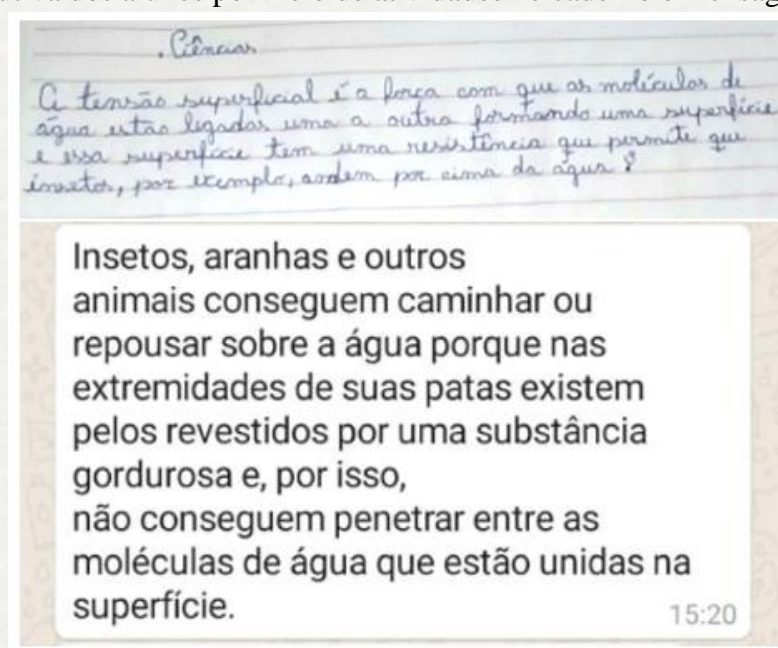 . Ciências
A tensão superficial é a força com que as moléculas de
água estão ligadas uma a outra formando uma superfície
e essa superfície tem uma resistência que permite que
insetos, por exemplo, andem por cima da água
Insetos, aranhas e outros
animais conseguem caminhar ou
repousar sobre a água porque nas
extremidades de suas patas existem
pelos revestidos por uma substância
gordurosa e, por isso,
não conseguem penetrar entre as
moléculas de água que estão unidas na
superfície.
15:20